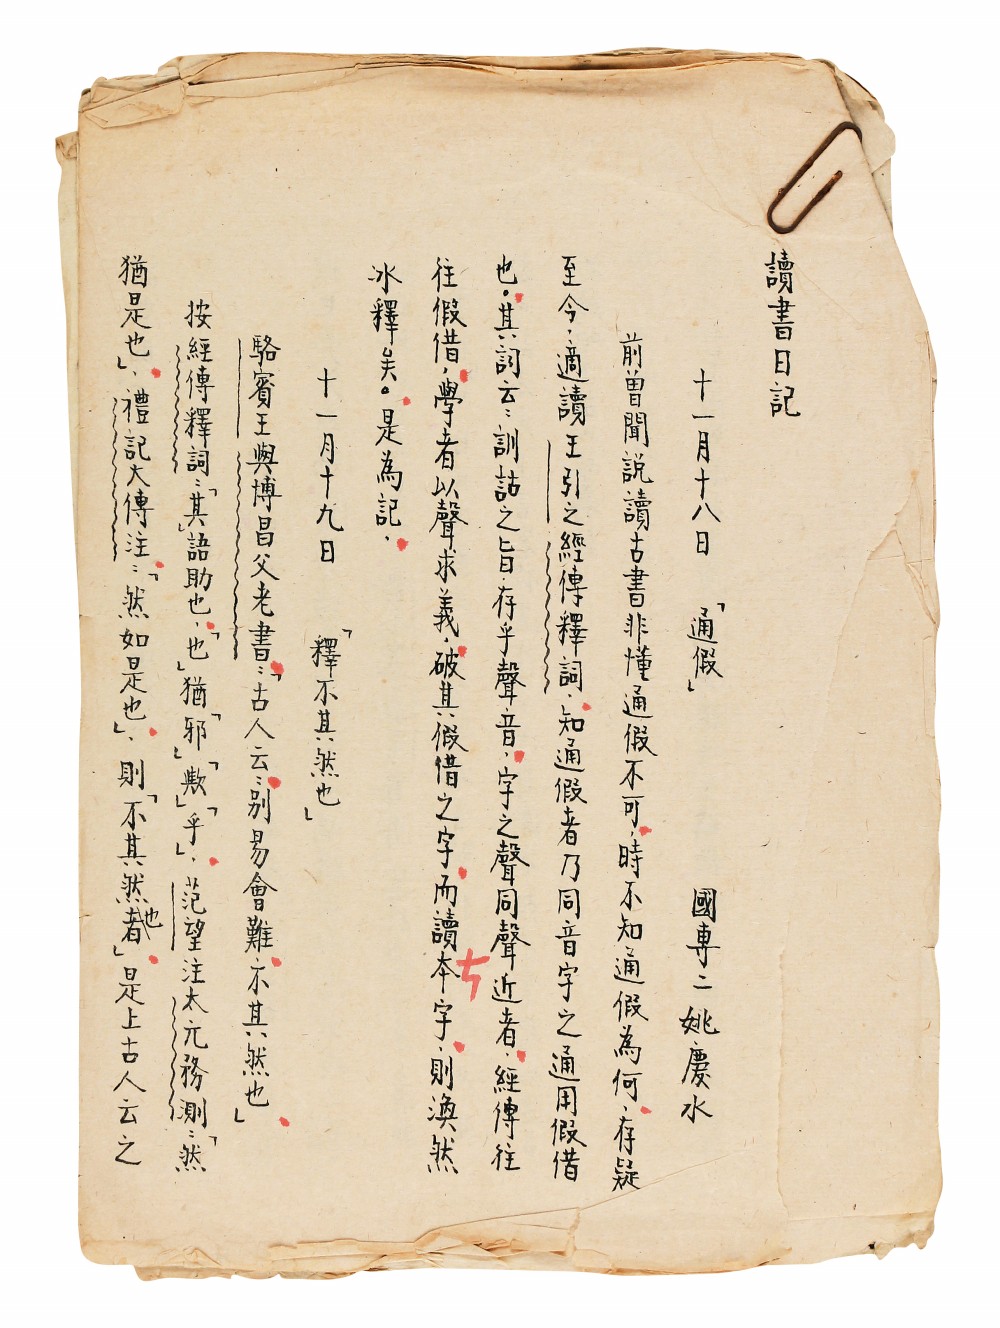 讀書日記
十一月十八日 「通假」 國專二 姚慶水
前曾聞説讀古書非懂通假不可，時不知通假為何，存疑
至今，適讀王引之經傳釋詞，知通假者乃同音字之通用假借
也。其詞云：訓詁之旨，存乎聲音，字之聲同聲近者，經傳往
往假借，學者以聲求義，破其假借之字，而讀本字，則渙然
冰釋矣。是為記。
十一月十九日 「釋不其然也」
駱賓王與博昌父老書：「古人云：別易會難，不其然也」
按經傳釋詞：「其」語助也，「也」猶「邪」「歟」「乎」，范望注太元務測：「然
猶是也」，禮記大傳注：「然如是也」，則「不其然也」是上古人云之